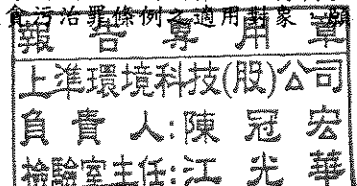 貪污治罪條例之適用對象 願
報告專用章
上準環境科技(股)公司
負責人:陳冠宏
檢驗室主任:江光華